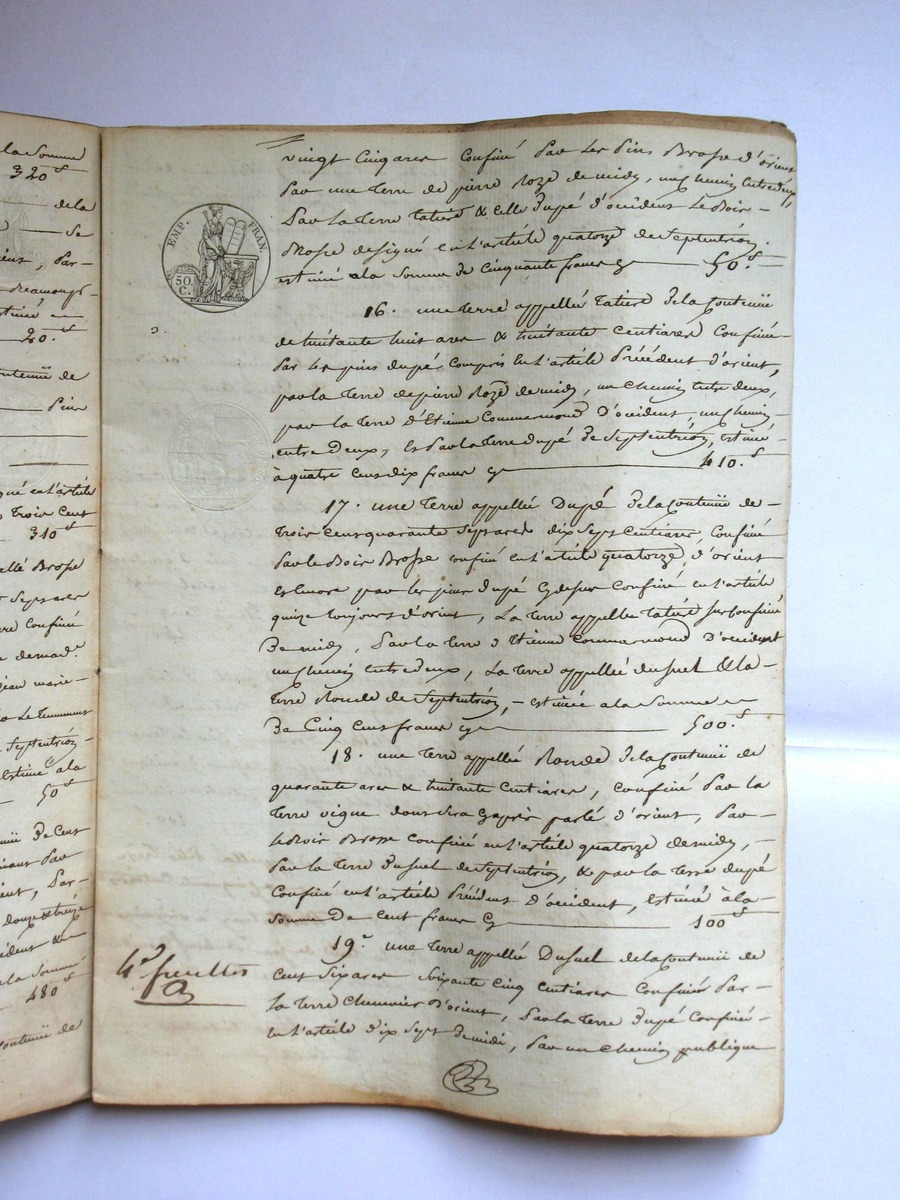 la Somme
320 f
de la
Se
Par-
20 f
Contenüe de
Pins
en l'article
Trois Cent
310 f
Brosse
Sept ares
Confiné
jean marie
Septentrion
Estimé a la
50 f
de Cent
Par
Par-
douze & treize
&
la Somme
480 f
Contenüe de
EMP. FRAN.
50 C.
vingt Cinq ares Confiné Par Les Pins Brosse d'orient
Par une Terre de pierre Roze de midy, un Chemin Entredeux,
Par La Terre Tatiere & Celle Dupé d'occident Le Bois
Brosse designé en L'article quatorze de Septentrion.
estimé a la Somme de Cinquante francs Cy 50. f
16. une Terre appellée Tatiere De la Contenüe
de huitante huit ares & huitante Centiares Confinée
Par les pins dupé, Compris En L'article Précédent d'orient,
par la Terre de pierre Roze de midy, un Chemin Entre deux,
par la Terre d'Etienne Commarmond D'occident, un Chemin
entre Deux, Et Par la Terre Dupé De Septentrion, estimée
à quatre Cent dix francs Cy 410. f
17. une Terre appellée Dupé De la Contenüe de
Trois Cent quarante Sept ares dix Sept Centiares, Confinée
Par le Bois Brosse confiné en L'article quatorze, d'orient
encore par les pins dupé Cydessus Confiné en L'article
quinze toujours d'orient, La Terre appellée Tatiere sus Confinée
De midy, Par la Terre d'Etienne Commarmond D'occident
un Chemin Entredeux, La Terre appellée du suel & la
Terre Ronde de Septentrion, estimée a la Somme
De Cinq Cent francs Cy 500. f
18. une Terre appellée Ronde De la Contenüe de
quarante ares & huitante Centiares, Confiné Par la
Terre vigne dont sera Cy après parlé d'orient, Par
le Bois Brosse Confiné en L'article quatorze de midy,
Par la Terre Du suel de Septentrion, & par la Terre dupé
Confiné en L'article Précédent d'occident, Estimée à la
Somme De Cent francs Cy 100 f
19. une Terre appellée Du suel de la Contenüe de
Cent Six ares Soixante Cinq Centiares Confinée Par
La Terre Chenevier D'orient, Par la Terre Dupé Confinée
en L'article Dix Sept De midi, Par un Chemin publique
4e feuillet